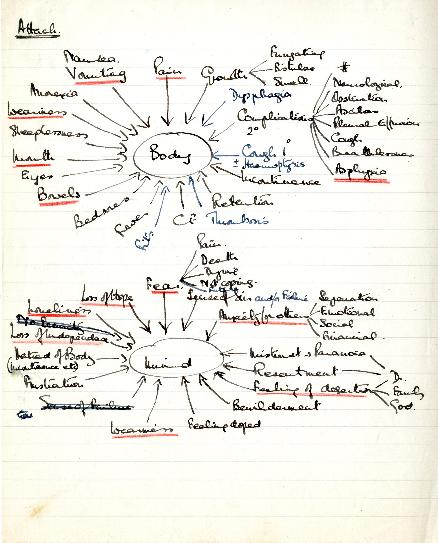 Attack.
Nausea
Vomiting
Pain
Growth
Fungating
Fistulas
Smell
Anorexia
Dysphagia
#
Neurological
Obstruction
Ascites
Pleural Effusion
Cough
Breathlessness
Asphyxia
Weariness
Sleeplessness
Complications
2°
Mouth
Body
Cough
± Haemoptysis
Eyes
Incontinence
Bowels
Bedsores
Fits
Retention
C.F
Thrombosis
Pain
Death
Dying
Not coping
Fear
Loss of Hope
Sin and/or Failure
Separation
Emotional
Social
Financial
Loneliness
Anxiety for others
Loss of Independence
Hatred of Body
(Incontinence etc)
Mind
Mistrust & Paranoea
Frustration
Resentment
Feeling of dejection
D.
Family
God.
Sense of Failure
Bewilderment
Weariness
Feeling doped